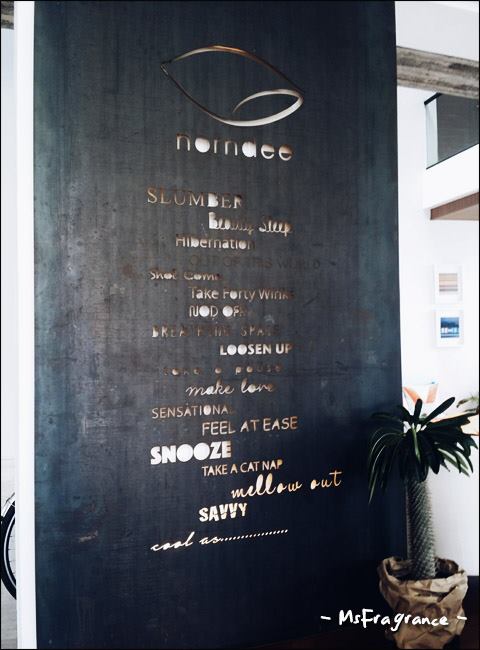 norndee
SLUMBER
Beauty Sleep
Hibernation
OUT OF THIS WORLD
Shot Coma
Take Forty Winks
NOD OFF
BREATHING SPACE
LOOSEN UP
take a pause
make love
SENSATIONAL
FEEL AT EASE
SNOOZE
TAKE A CAT NAP
mellow out
SAVVY
cool as................
- MsFragrance -